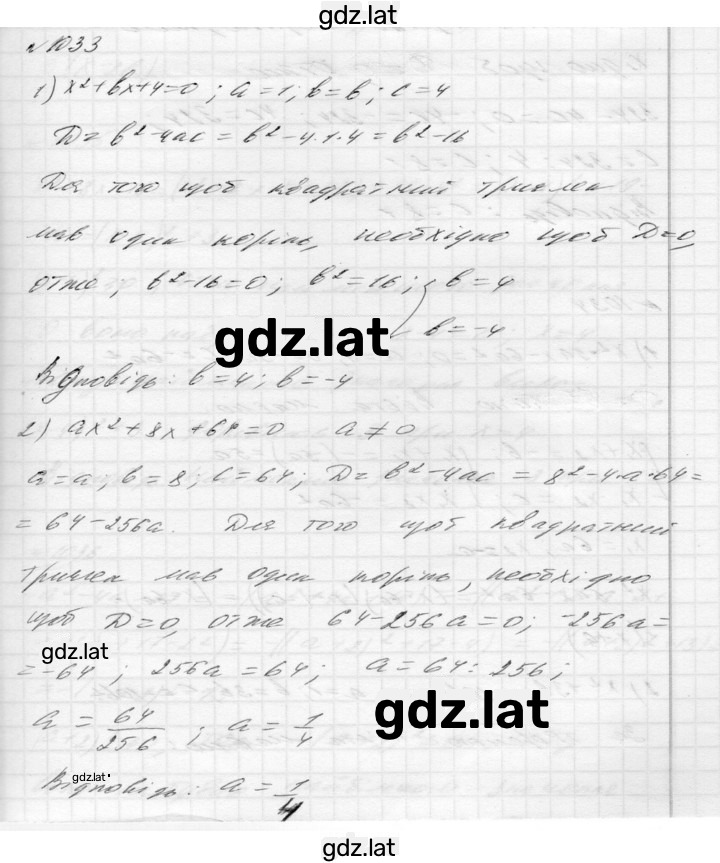 gdz.lat
№1033
1) x²+bx+4=0 ; a=1; b=b; c=4
D=b²-4ac=b²-4·1·4=b²-16
Для того щоб квадратний тричлен
мав один корінь, необхідно щоб D=0,
отже, b²-16=0; b²=16; b=4
gdz.lat b=-4
Відповідь: b=4; b=-4
2) ax²+8x+64=0 a≠0
a=a, b=8, c=64; D=b²-4ac=8²-4·a·64=
=64-256a. Для того щоб квадратний
тричлен мав один корінь, необхідно
щоб D=0, отже 64-256a=0; -256a=
gdz.lat
=-64 ; 256a=64; a=64:256;
gdz.lat
a=64/256 ; a=1/4
gdz.lat
Відповідь: a=1/4
gdz.lat